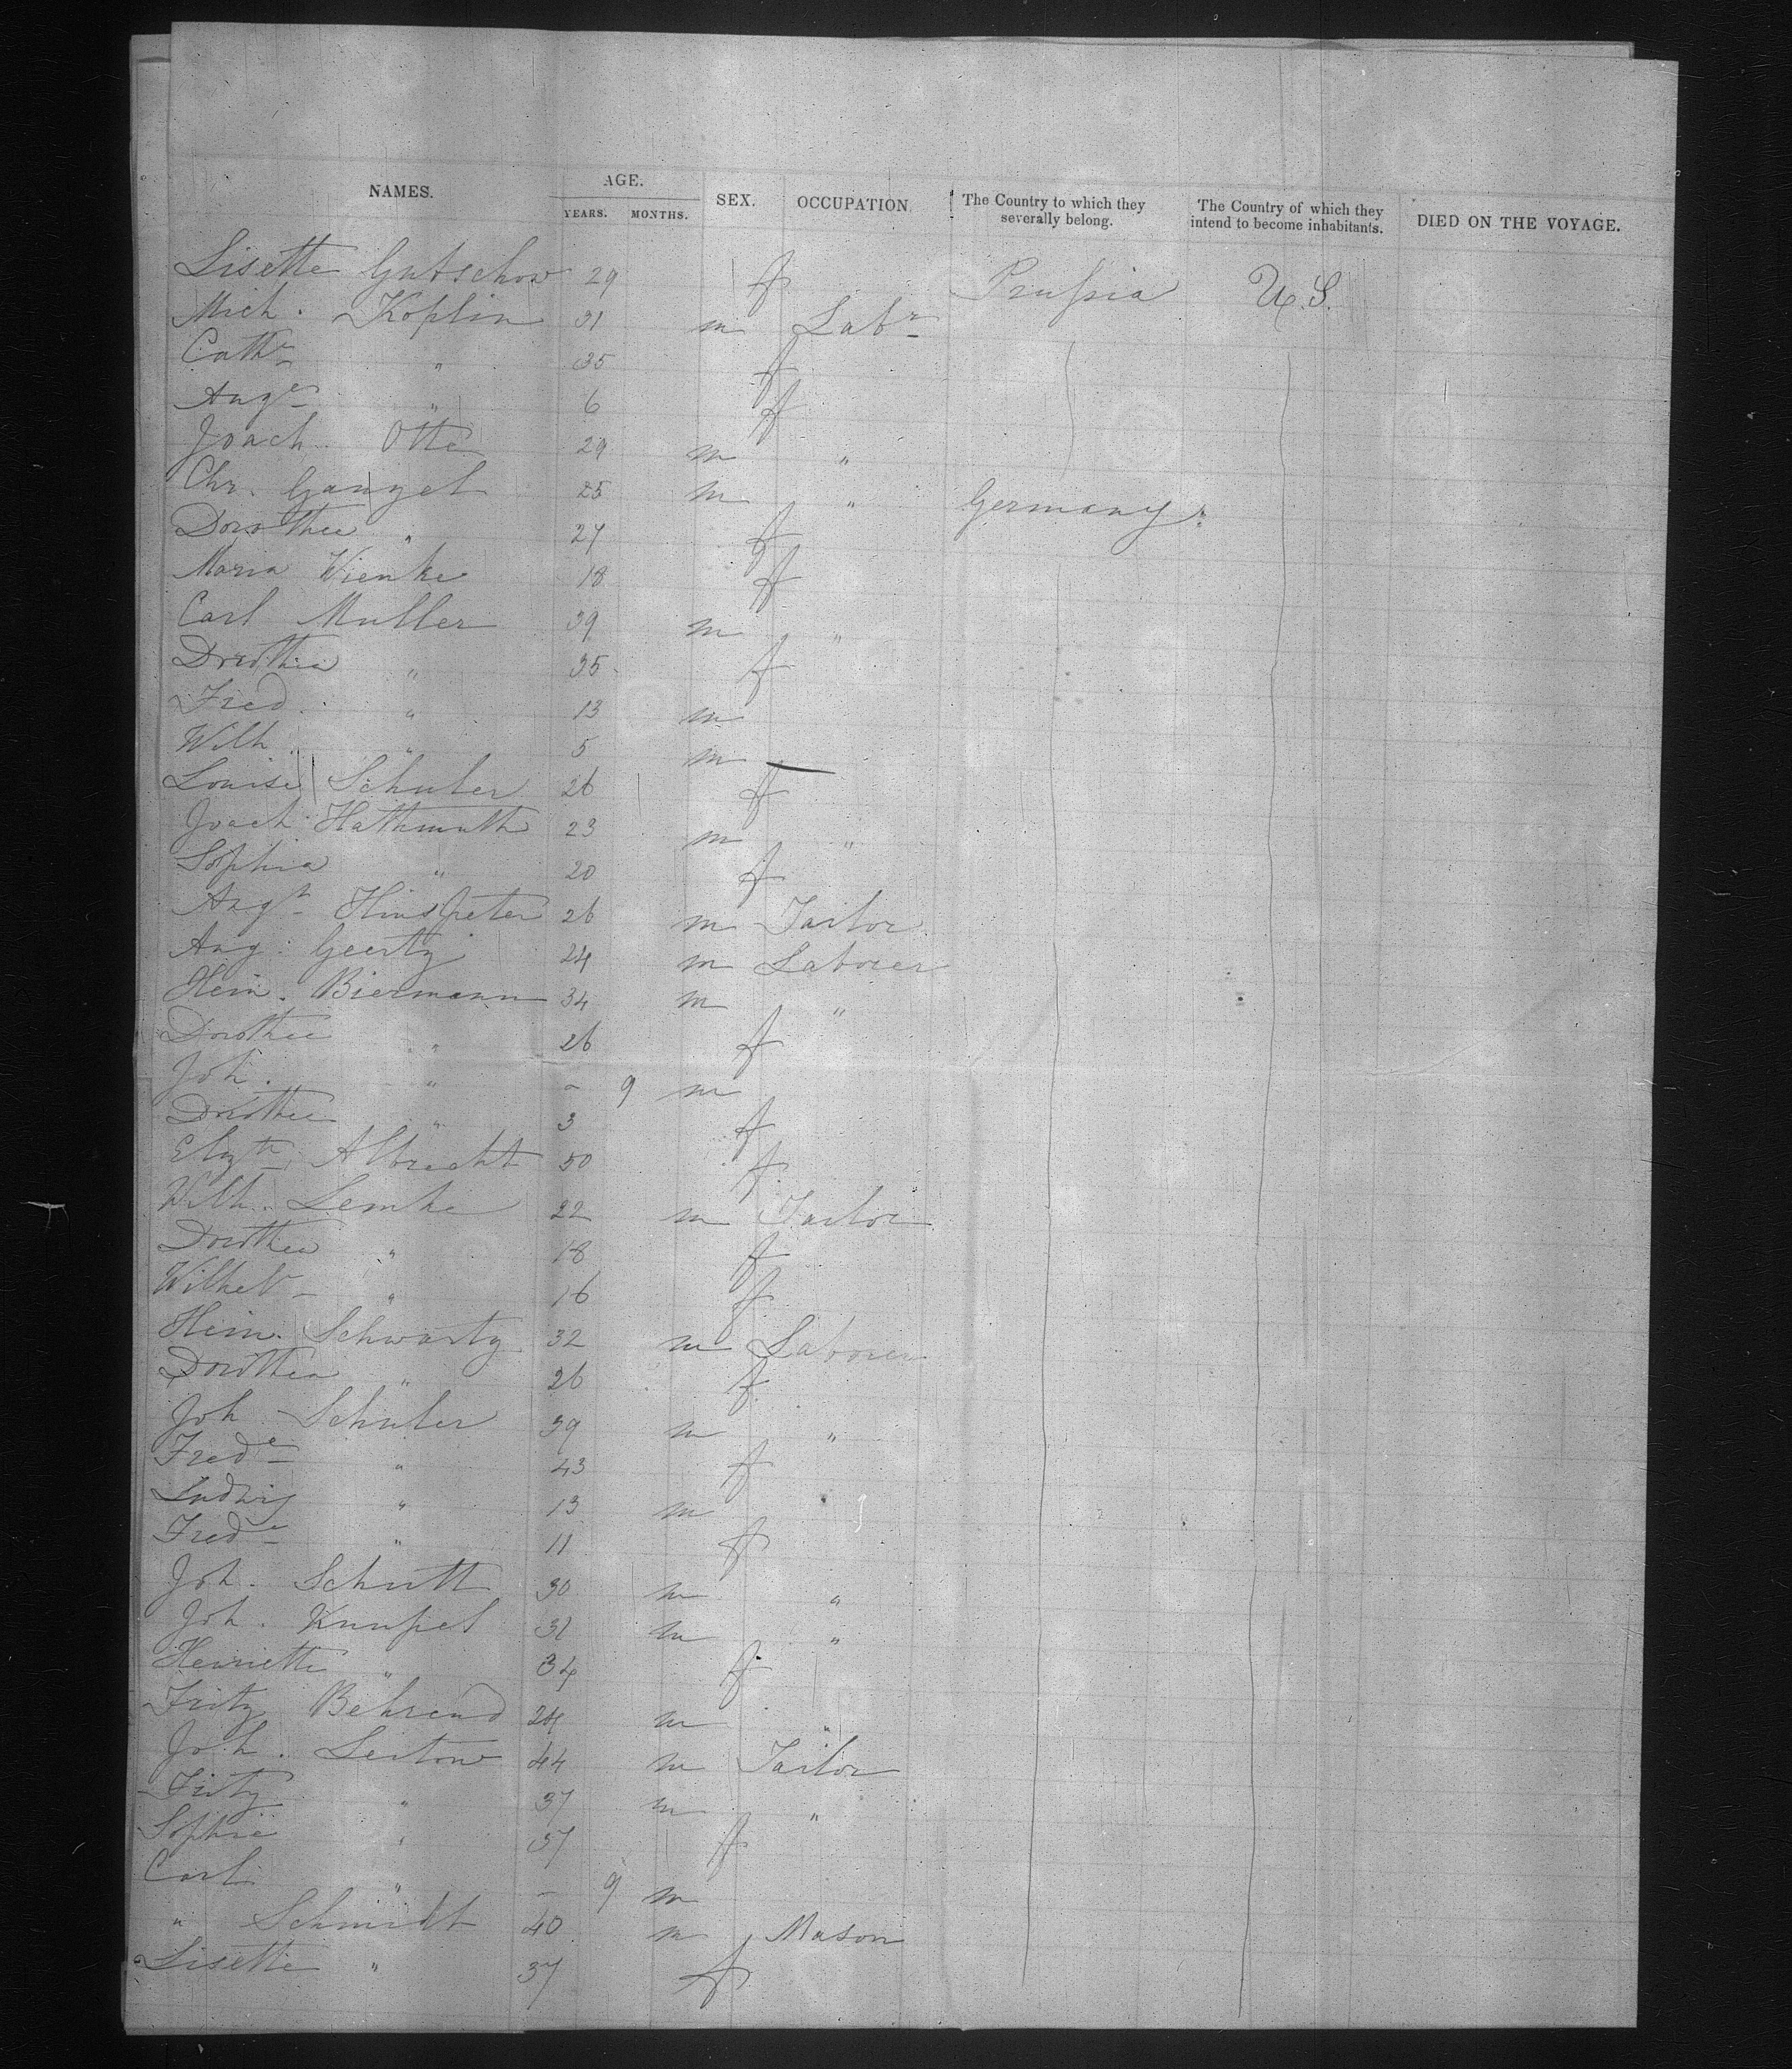 NAMES. AGE. SEX. OCCUPATION. The Country to which they severally belong. The Country of which they intend to become inhabitants. DIED ON THE VOYAGE.
YEARS. MONTHS.
Lisette Gutschow 29 f Prussia U.S.
Mich. Koplin 31 m Labr
Cathe " 35 f
Auge " 6 f
Joach. Otte 29 m "
Chr. Gangel 25 m " Germany
Dorothee " 27 f
Maria Wienke 18 f
Carl Muller 39 m "
Dorothea " 35 f
Fred. " 13 m
Wilh. " 5 m
Louise Schuler 26 f
Joach. Hathmuth 23 m "
Sophia " 20 f
Augt Hinspeter 26 m Tailor
Aug. Geertz 24 m Laborer
Hein. Biermann 34 m "
Dorothee " 26 f
Joh. " - 9 m
Dorothee " 3 f
Elizth Albrecht 50 f
Wilh. Lemke 22 m Tailor
Dorothea " 18 f
" 16 f
Hein. Schwartz 32 m Laborer
Dorothea " 26 f
Joh. Schuler 39 m "
Frede " 43 f
Ludwig " 13 m
Frede " 11 f
Joh. Schutt 30 m "
Joh. Knupel 31 m "
Henriette " 34 f
Fritz Behrend 24 m "
Joh. 44 m Tailor
Fritz " 37 m "
Sophie " 37 f
Carl " - 9 m
" Schmidt 40 m Mason
Lisette " 37 f